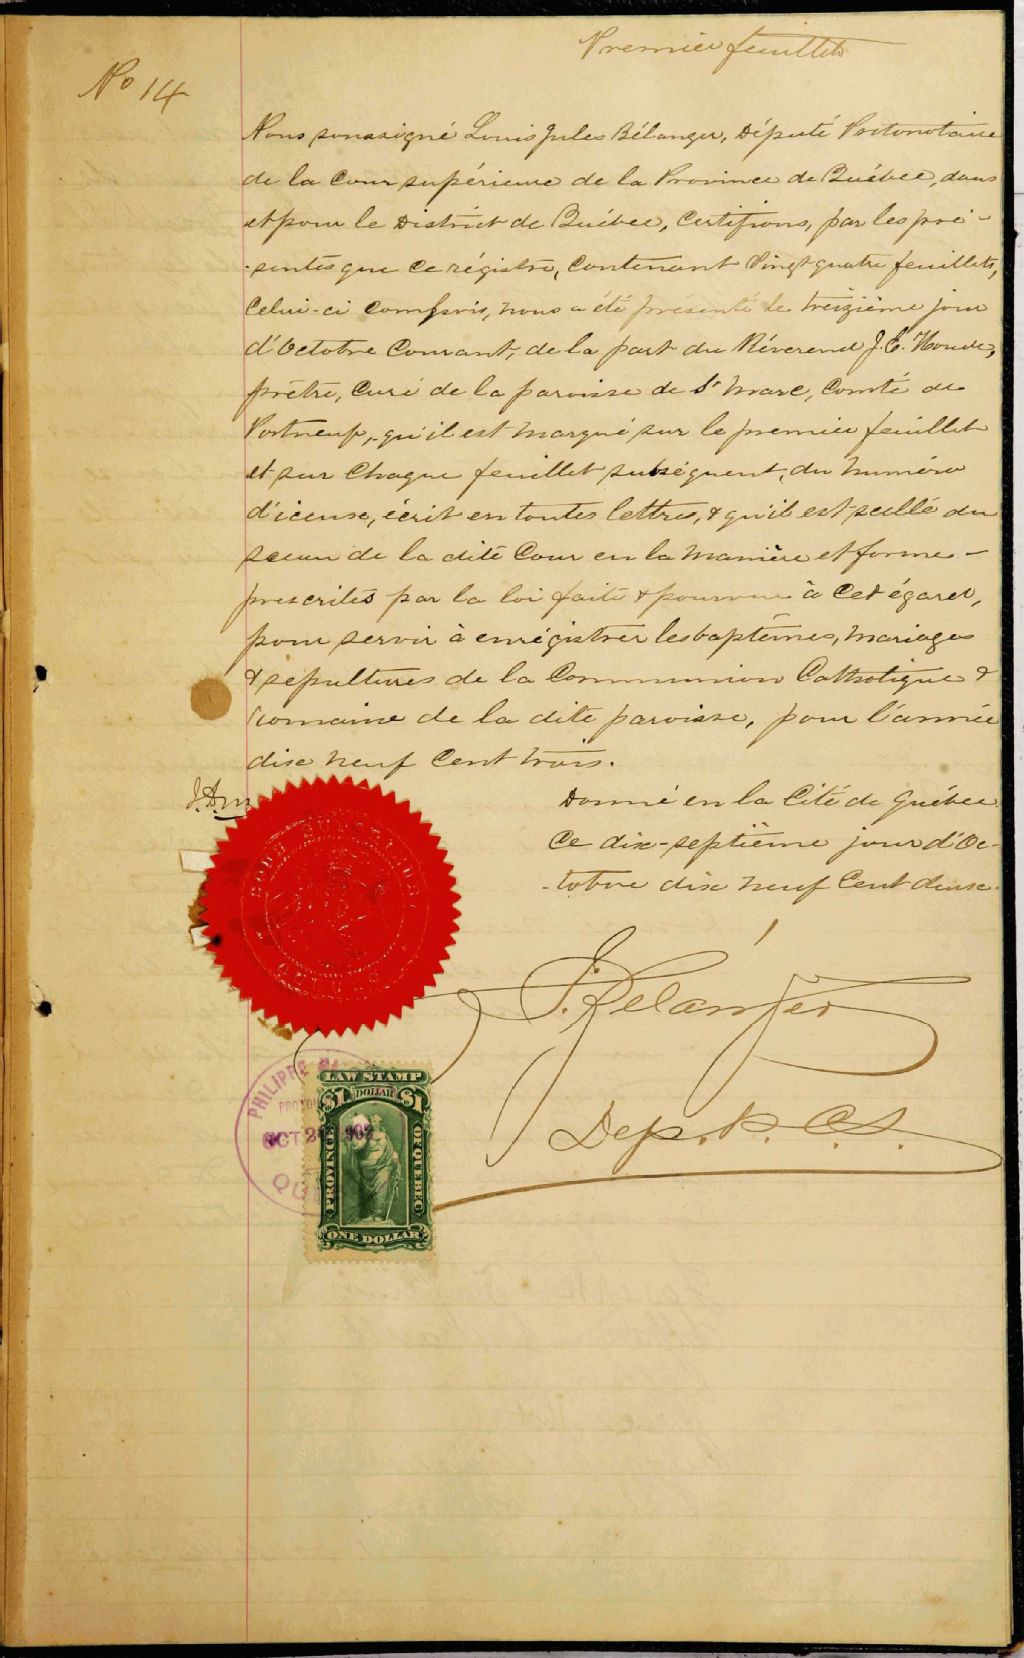 Premier feuillet
No 14
Nous soussigné Louis Jules Bélanger, Député Protonotaire
de la Cour supérieure de la Province de Québec, dans
et pour le District de Québec, Certifions, par les pré-
-sentes que ce régistre, contenant Vingt quatre feuillets,
Celui-ci compris, nous a été présenté le treizième jour
d'Octobre Courant, de la part du Réverend J. E. Houde,
prêtre, Curé de la paroisse de St Marc, Comté de
Portneuf, qu'il est marqué sur le premier feuillet
et sur Chaque feuillet subséquent, du numéro
d'iceux, écrit en toutes lettres, & qu'il est scellé du
sceau de la dite Cour en la manière et forme
prescrites par la loi faite & pourvue à Cet égard,
pour servir à enrégistrer les baptêmes, mariages
& sépultures de la Communion Catholique &
romaine de la dite paroisse, pour l'année
dix neuf Cent trois.
Donné en la Cité de Québec
Ce dix-septième jour d'Oc-
-tobre dix neuf Cent deux.
J. Belanger
Dep. P. C. S.
PHILIPPE
OCT 2 1902
QU
LAW STAMP
$1 DOLLAR $1
PROVINCE OF QUEBEC
ONE DOLLAR